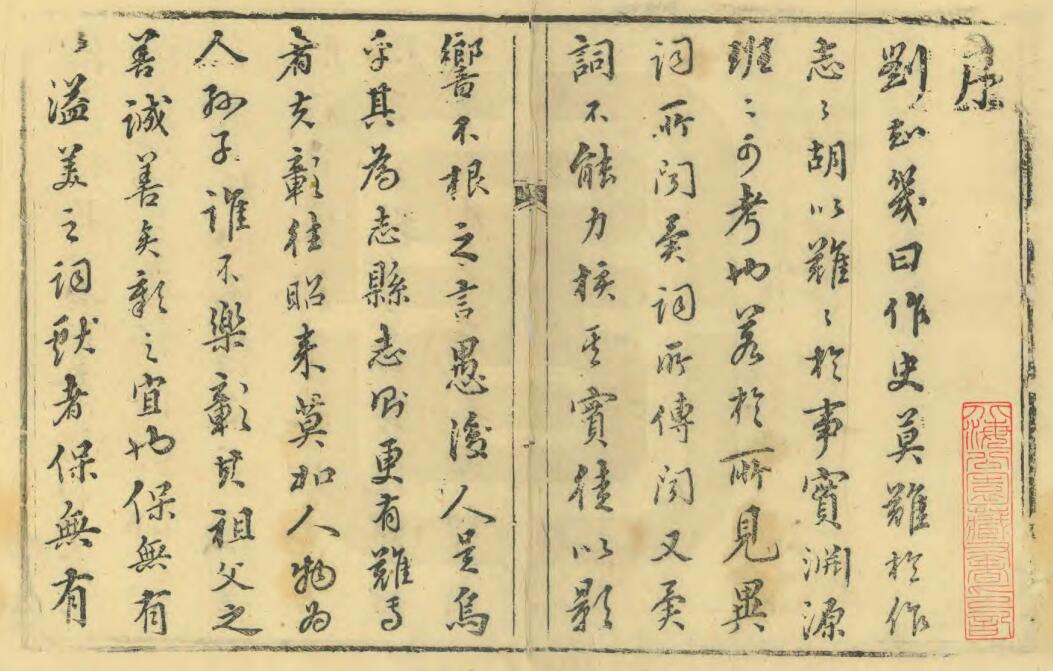 序
劉知幾曰作史莫難於作
志志胡以難難於事實淵源
班班可考也若於所見異
詞所聞異詞所傳聞又異
詞不能力核其實徒以影
響不根之言愚後人是烏
乎其為志縣志則更有難焉
者夫彰往昭來莫如人物為
人孫子誰不樂彰其祖父之
善誠善矣彰之宜也保無有
溢美之詞獻者保無有